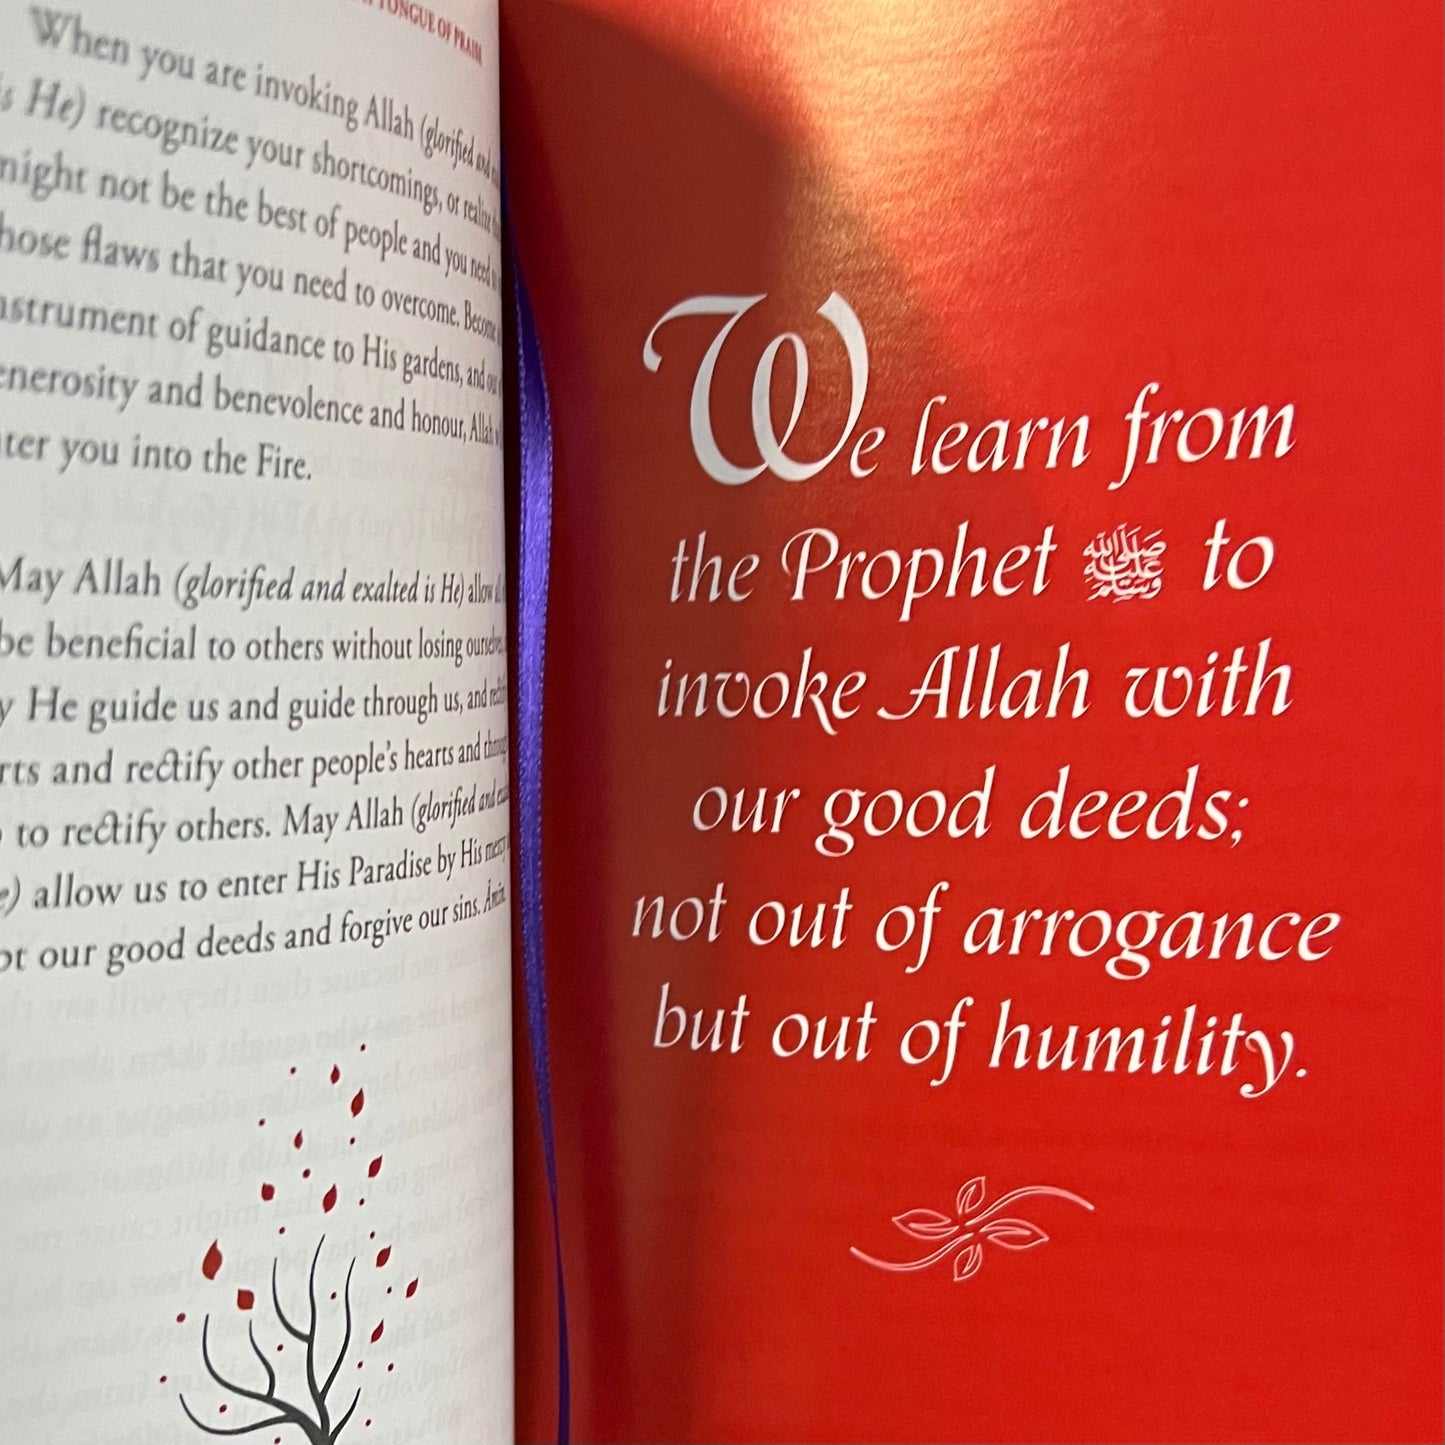 TONGUE OF PRAISE
When you are invoking Allah (glorified and
is He) recognize your shortcomings, or realize
might not be the best of people and you need to
those flaws that you need to overcome. Become
instrument of guidance to His gardens, and
generosity and benevolence and honour, Allah
enter you into the Fire.
May Allah (glorified and exalted is He) allow
be beneficial to others without losing ourselves,
He guide us and guide through us, and
and rectify other people's hearts and through
to rectify others. May Allah (glorified and
He) allow us to enter His Paradise by His mercy
our good deeds and forgive our sins. Āmīn.
We learn from
the Prophet ﷺ to
invoke Allah with
our good deeds;
not out of arrogance
but out of humility.